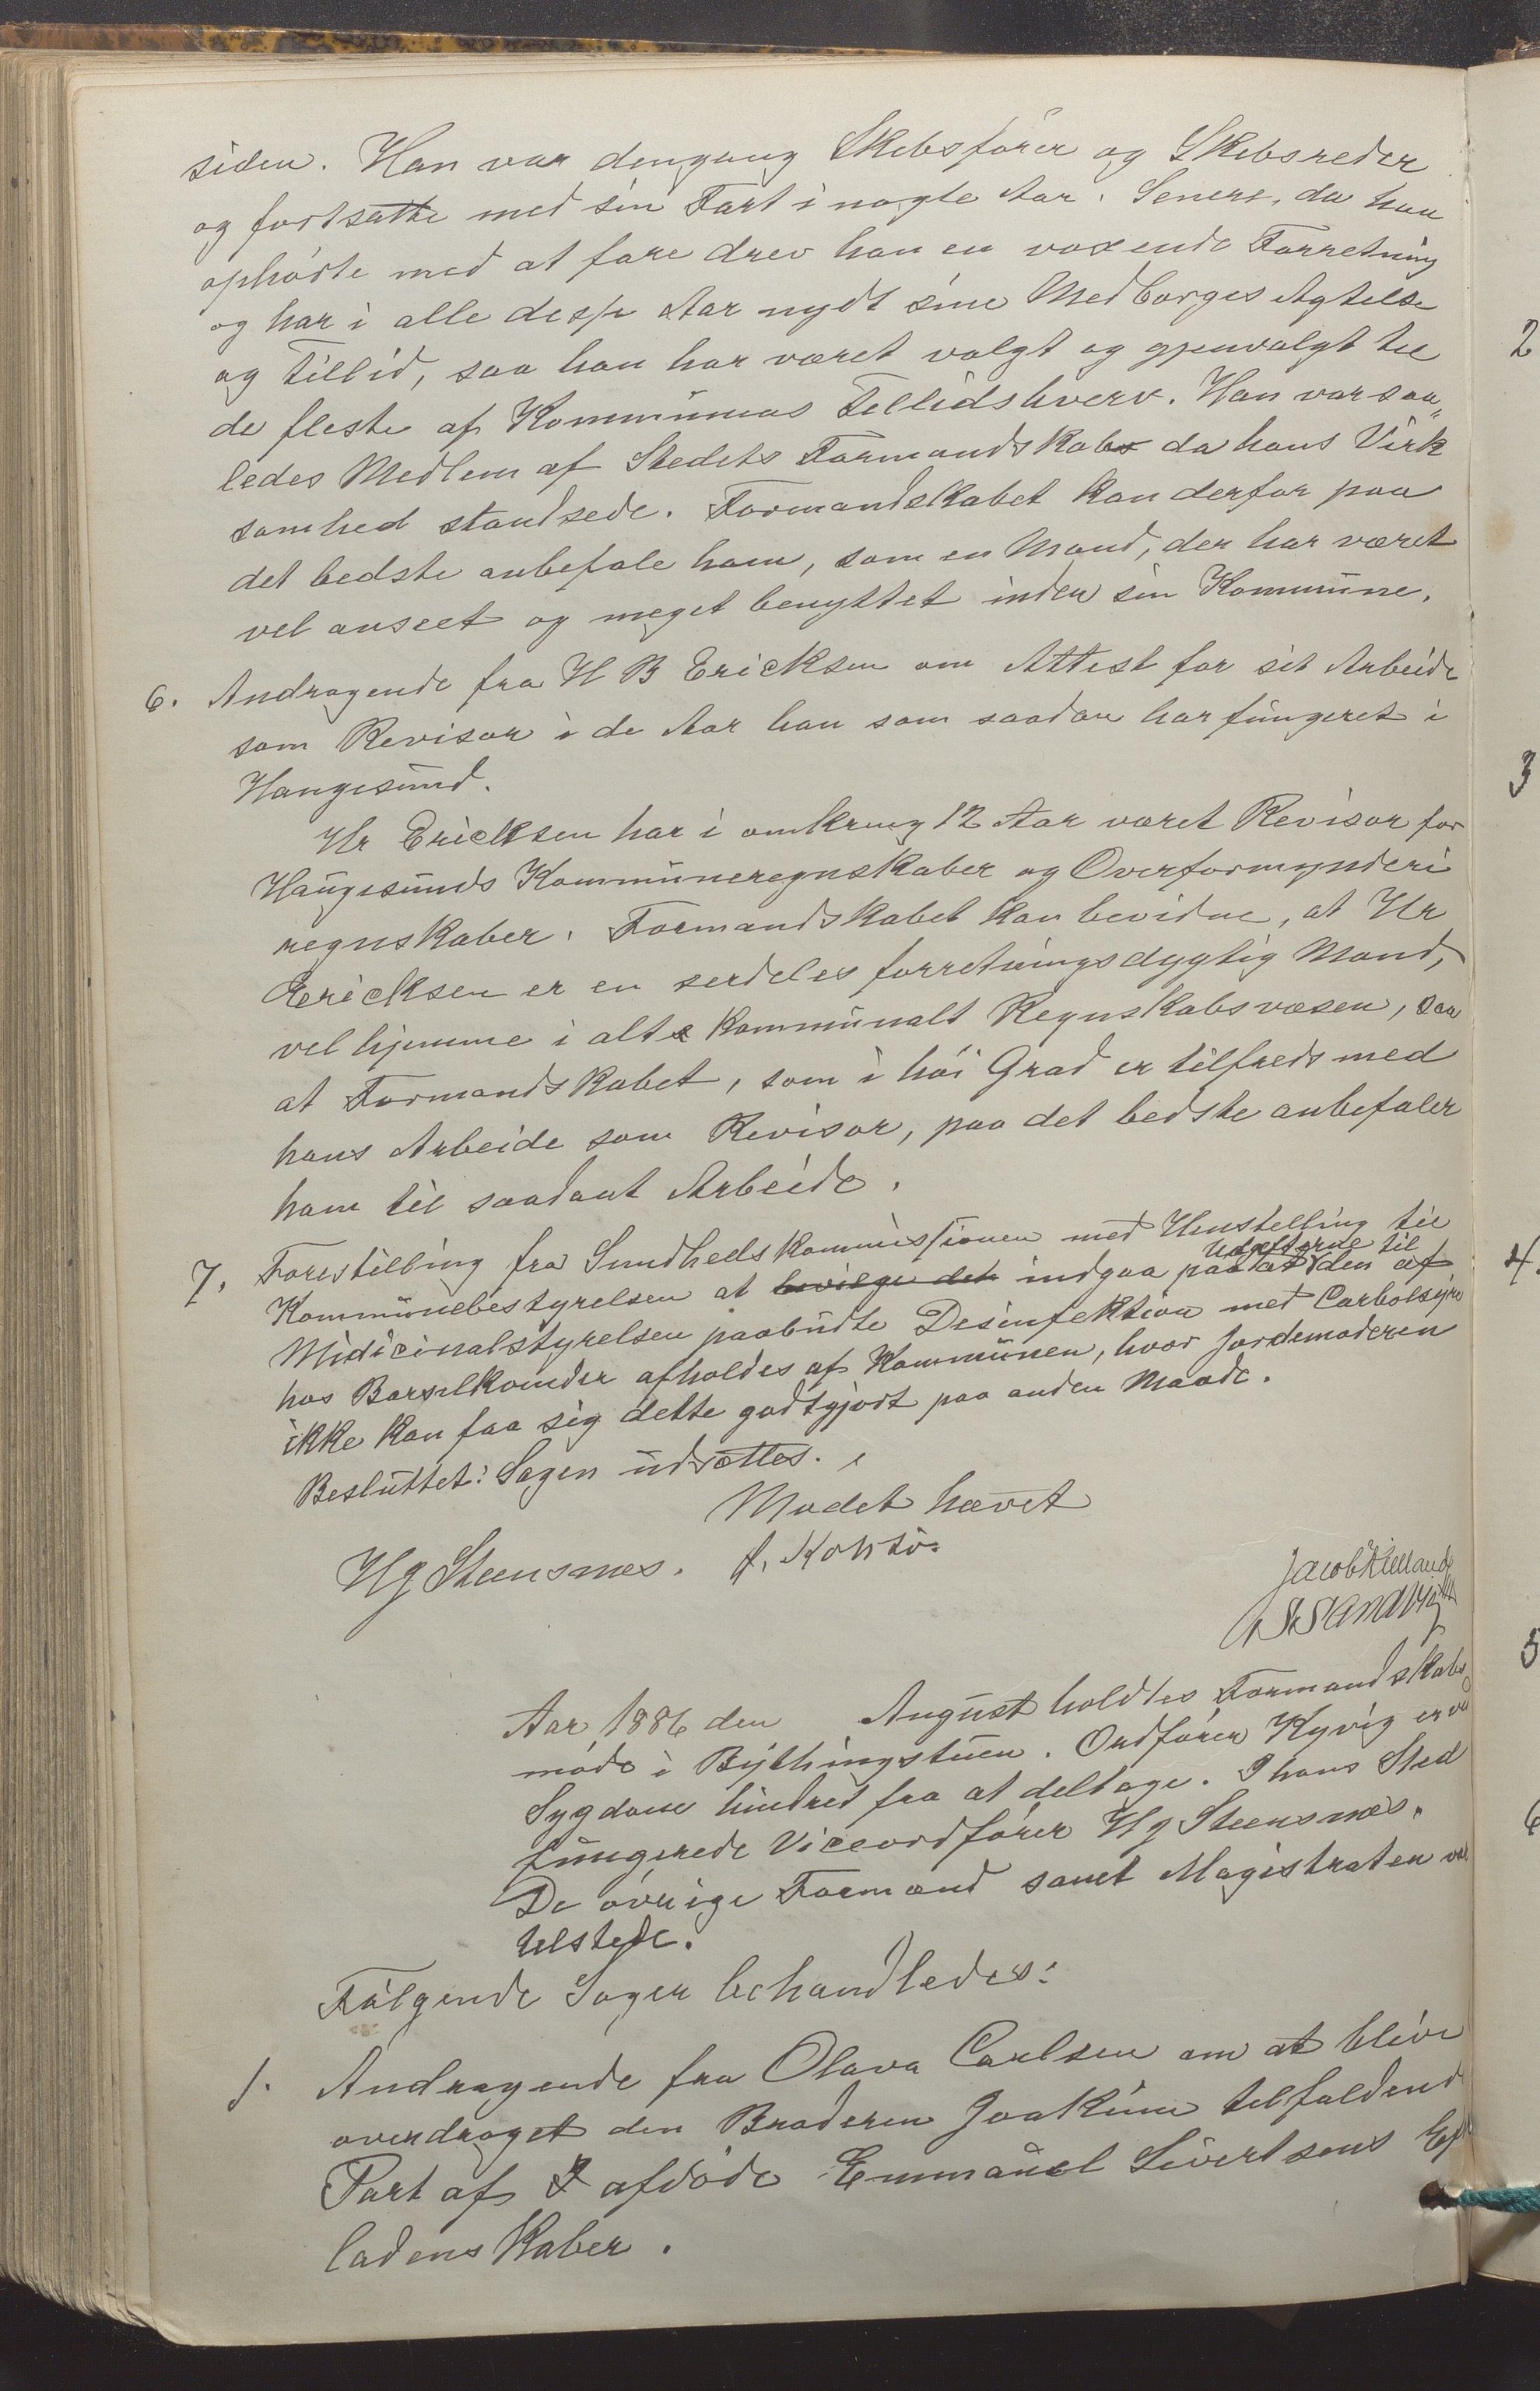 siden. Han var dengang Skibsfører og Skibsreder
og fortsatte med sin Fart i nogle Aar. Senere, da han
ophørte med at fare drev han en voxende Forretning
og har i alle disse Aar nydt sine Medborges Agtelse
og Tillid, saa han har været valgt og gjenvalgt til
de fleste af Kommunens Tillidshverv. Han var saa„
ledes Medlem af Stedets Formandskab da hans Virk
somhed standsede. Formandskabet kan derfor paa
det bedste anbefale ham, som en Mand, der har været
vel anseet og meget benyttet inden sin Kommune.
6. Andragende fra H B Ericksen om Attest for sit Arbeide
som Revisor i de Aar han som saadan har fungeret i
Haugesund.
Hr Ericksen har i omkring 12 Aar været Revisor for
Haugesunds Kommuneregnskaber og Overformynderi
regnskaber. Formandskabet kan bevidne, at Hr
Ericksen er en serdeles forretningsdygtig Mand,
vel hjemme i alt kommunalt Regnskabsvæsen, saa
at Formandskabet, som i høi Grad er tilfreds med
hans Arbeide som Revisor, paa det bedste anbefaler
ham til saadant Arbeide.
7. Forestilling fra Sundhedskommissionen med Henstilling til
Kommunebestyrelsen at bevilge det indgaa paa at Udgifterne til den af
Midicinalstyrelsen paabudte Desinfektion med Carbolsyre
hos Barselkvinder afholdes af Kommunen, hvor Jordemoderen
ikke kan faa sig dette godtgjort paa anden Maade.
Besluttet: Sagen udsættes.
Mødet hævet
Hg Steensnæs. J. Kohtø.
Jacob Kielland
S. Sandvig
Aar 1886 den August holdtes Formandskabs
møde i Bythingstuen. Ordfører Kyvig er ved
Sygdom hindret fra at deltage. I hans Sted
fungerede Viceordfører Hg Steensnæs.
De øvrige Formænd samt Magistraten var
tilstede.
Følgende Sager behandledes:
1. Andragende fra Olava Carlsen om at blive
overdraget den Broderen Joakim tilfaldend
Part af afdøde Emmanuel Sivertsens Ef
ladenskaber.
2
3
4.
5
6